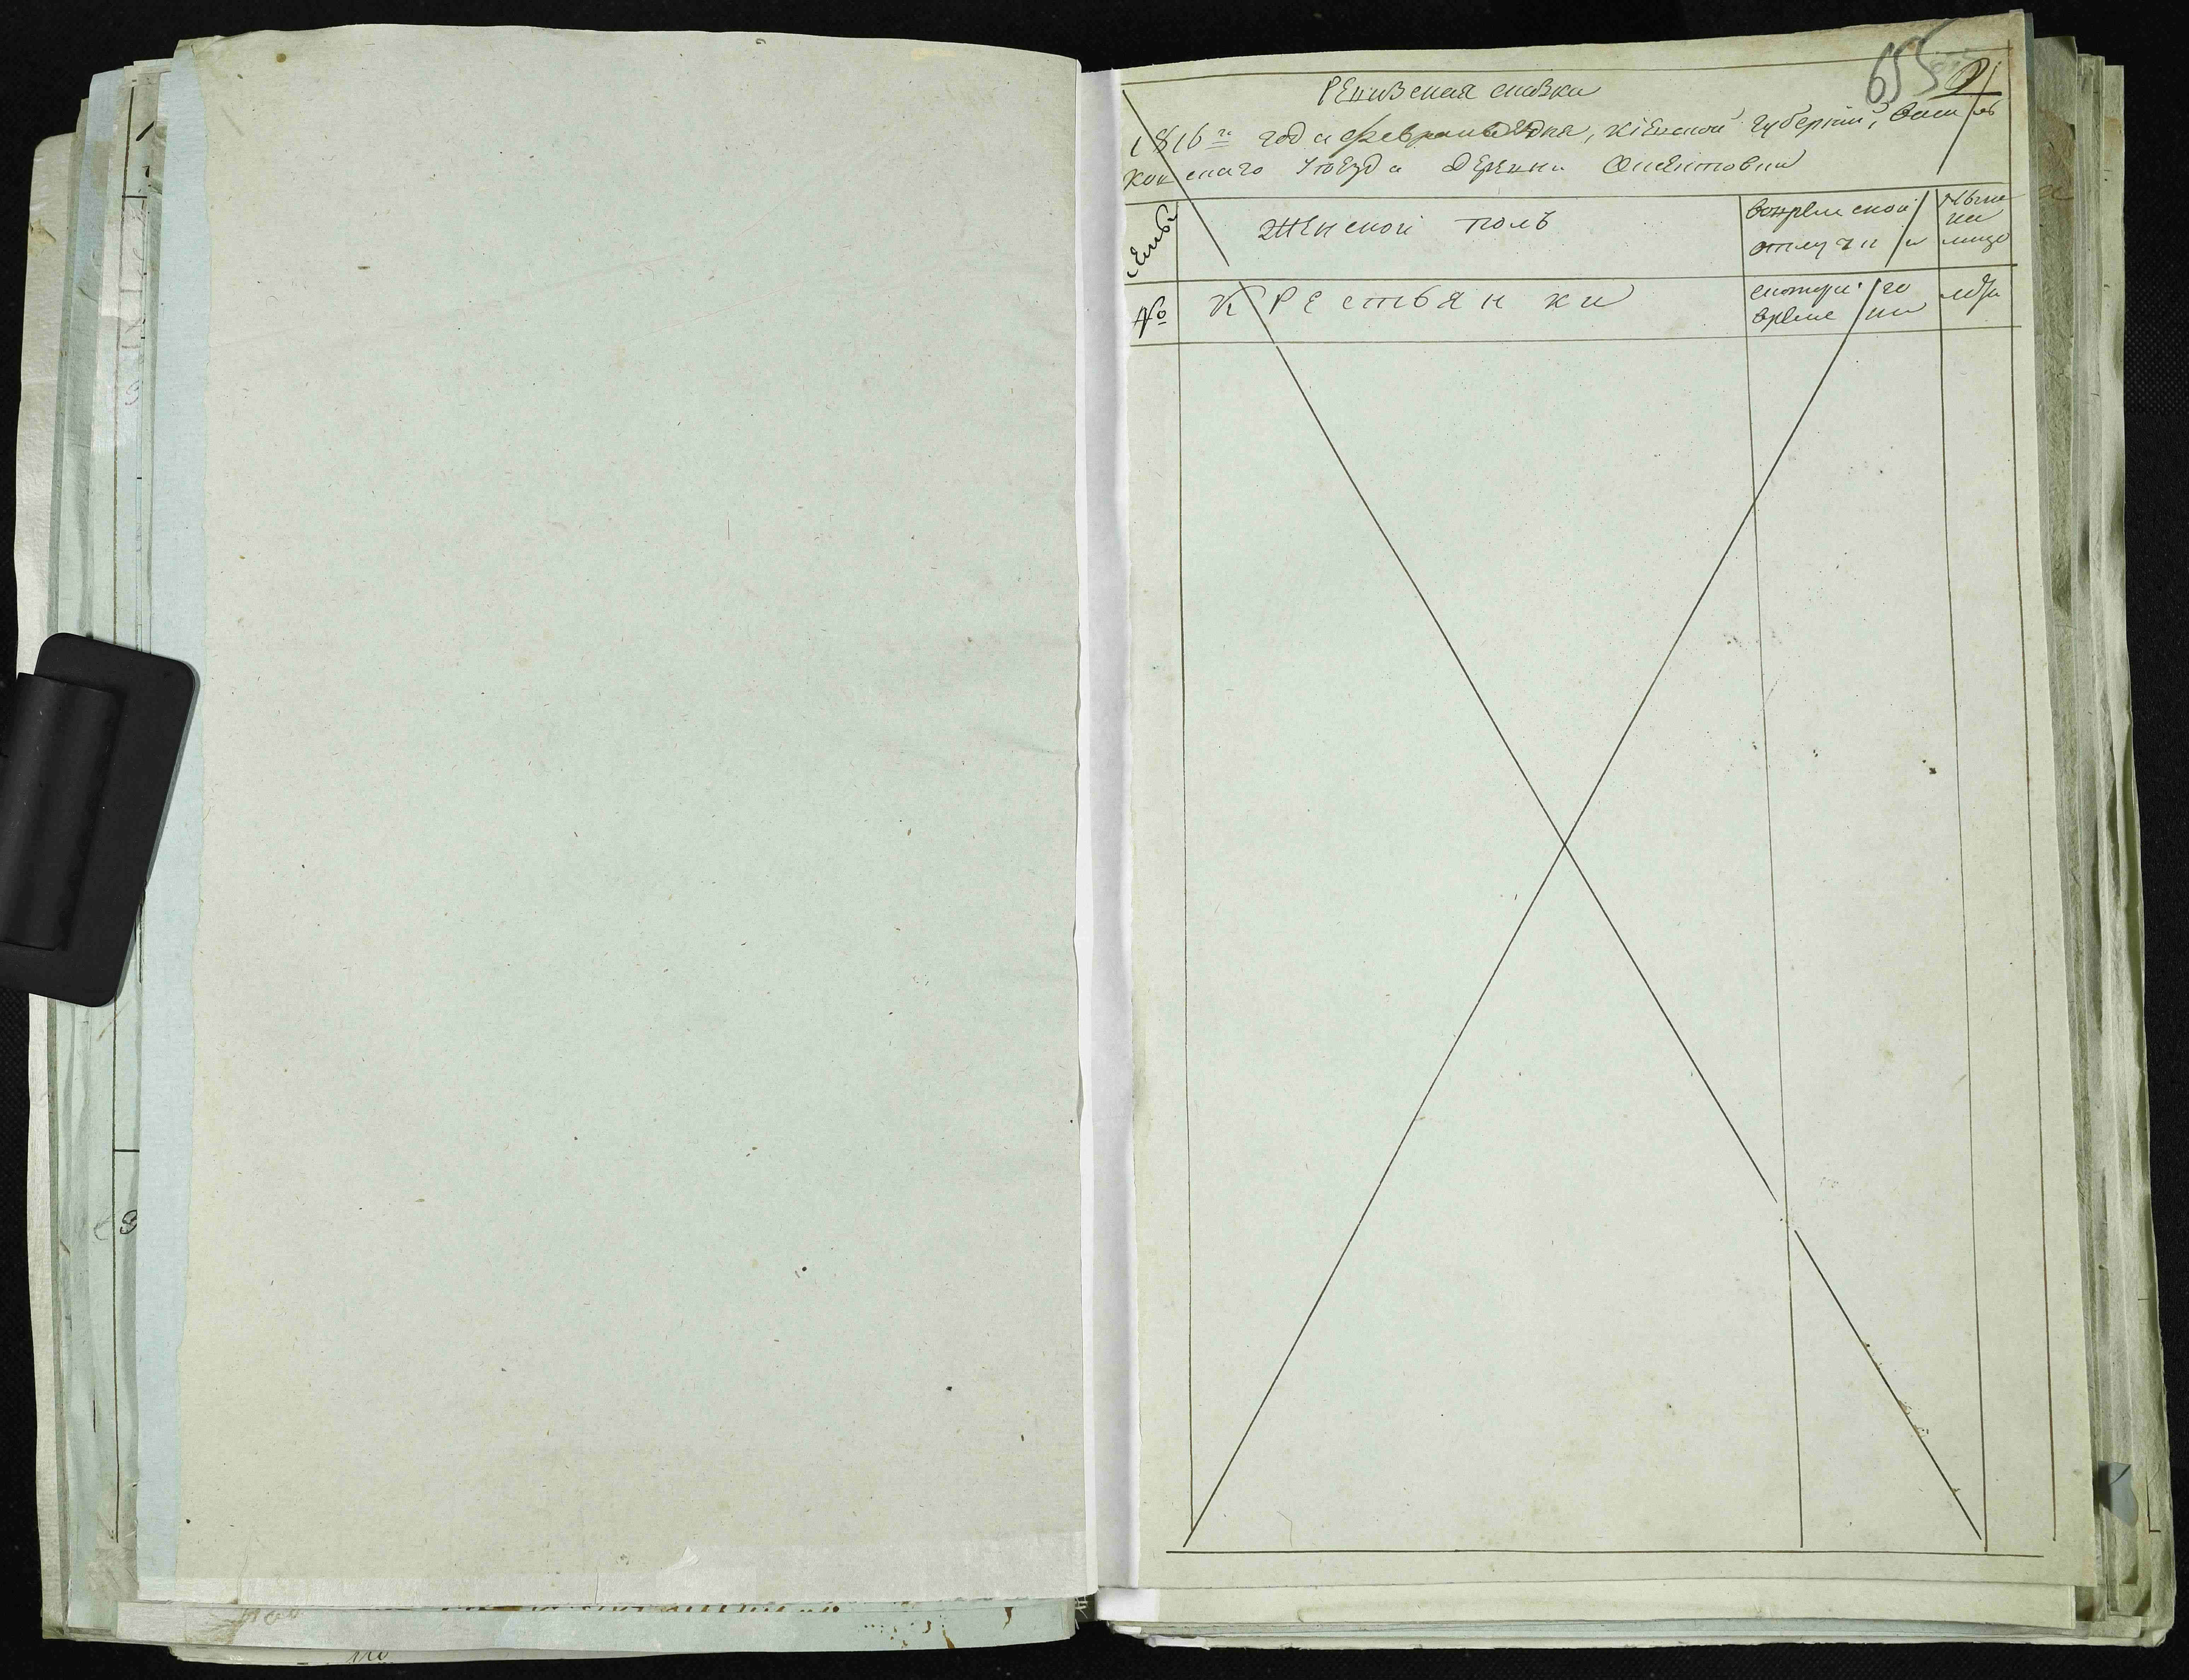 655
Ревизская сказка
1816го года февраля дня, Кіевской Губерніи, Василь
ковскаго Уѣзда Деревни
семьи
Женской полъ
во временной отлучки
Ныне на лицо
№
Крестьянки
скотораго времени
лѣта